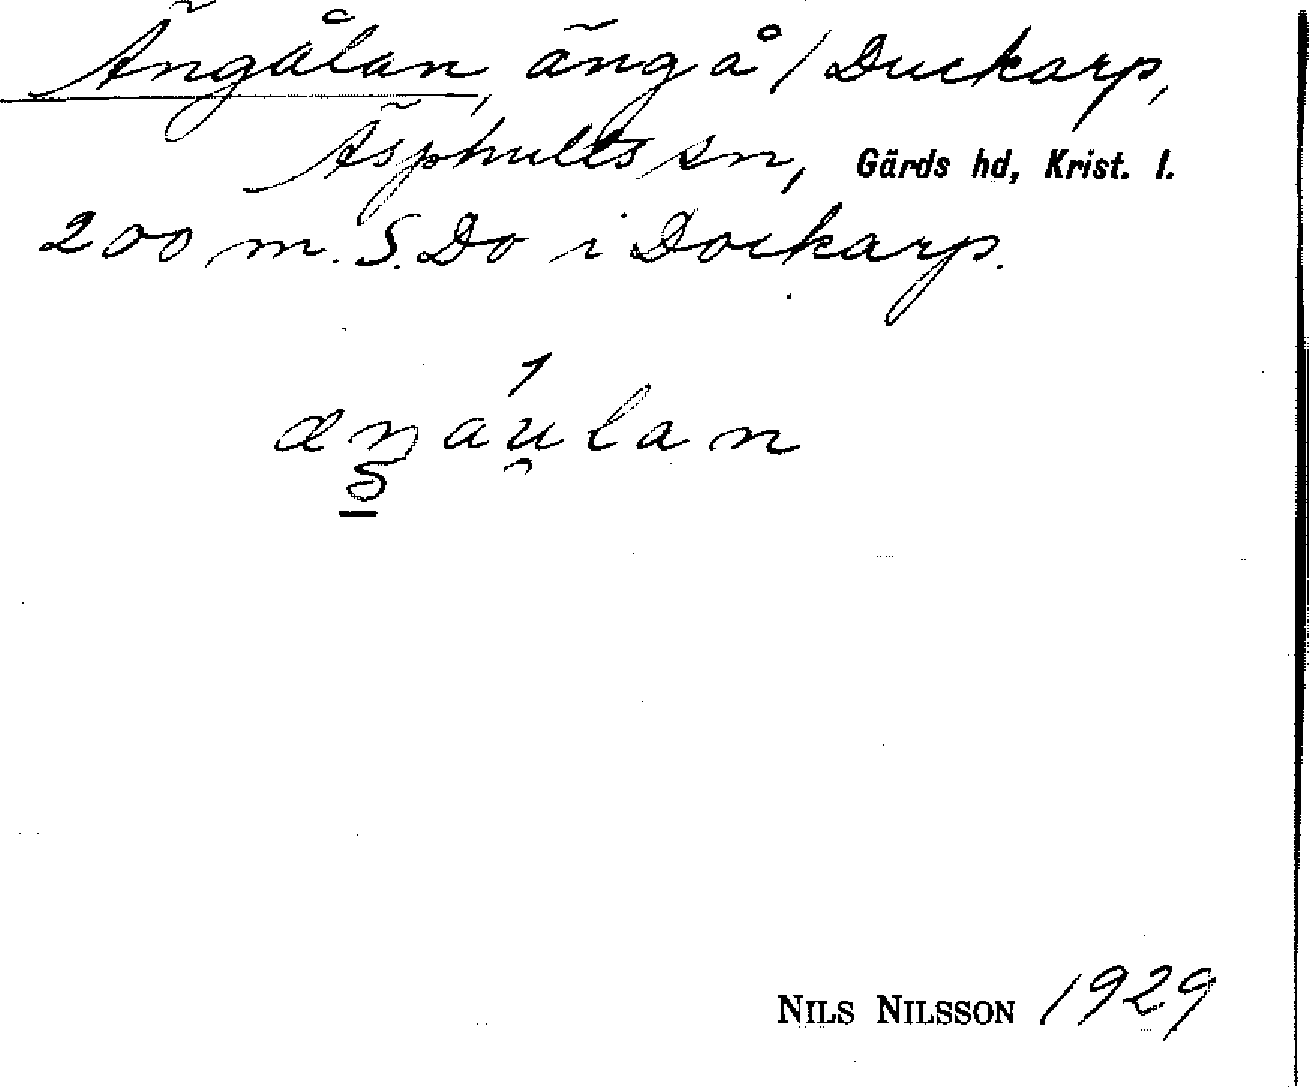 Ängålan, äng å / Duckarp,
Äsphults sn, Gärds hd, Krist. l.
200 m. S. Do i Dockarp.
NILS NILSSON 1929